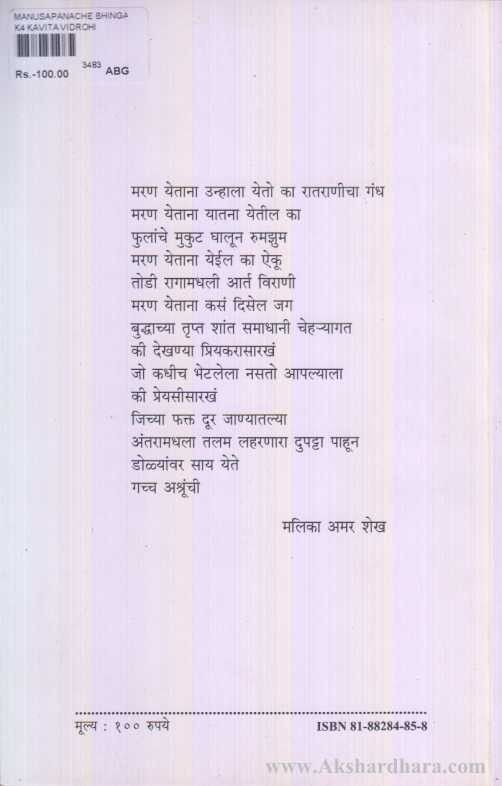 MANUSAPANACHE BHINGA
K4 KAVITA VIDROHI
3483
Rs.-100.00 ABG
मरण येताना उन्हाला येतो का रातराणीचा गंध
मरण येताना यातना येतील का
फुलांचे मुकुट घालून रुमझुम
मरण येताना येईल का ऐकू
तोडी रागामधली आर्त विराणी
मरण येताना कसं दिसेल जग
बुद्धाच्या तृप्त शांत समाधानी चेहऱ्यागत
की देखण्या प्रियकरासारखं
जो कधीच भेटलेला नसतो आपल्याला
की प्रेयसीसारखं
जिच्या फक्त दूर जाण्यातल्या
अंतरामधला तलम लहरणारा दुपट्टा पाहून
डोळ्यांवर साय येते
गच्च अश्रूंची
मलिका अमर शेख
मूल्य : १०० रुपये
ISBN 81-88284-85-8
www.Akshardhara.com